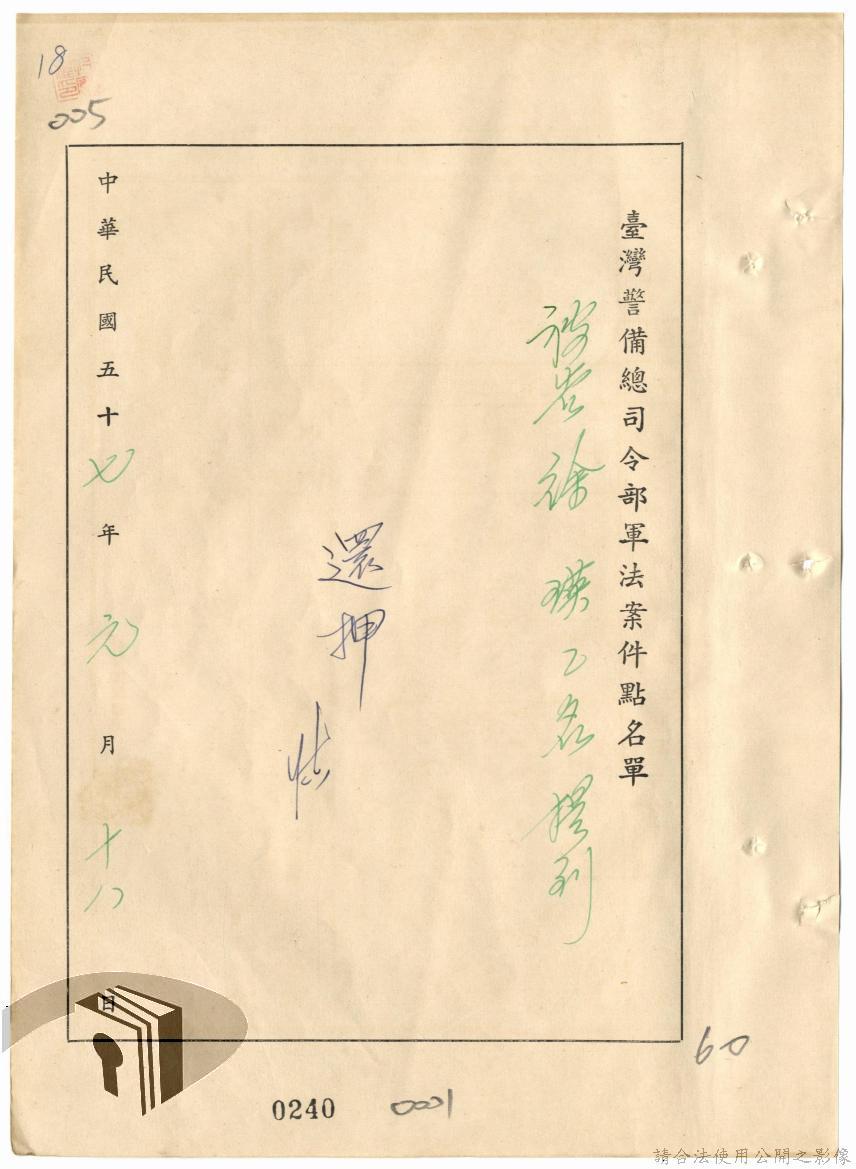 18
005
臺灣警備總司令部軍法案件點名單
被告徐瑛乙名提到
還押
中華民國五十七年元月十八日
60
0240 0001
請合法使用公開之影像